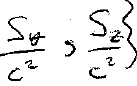 S_y/c², S_z/c²}